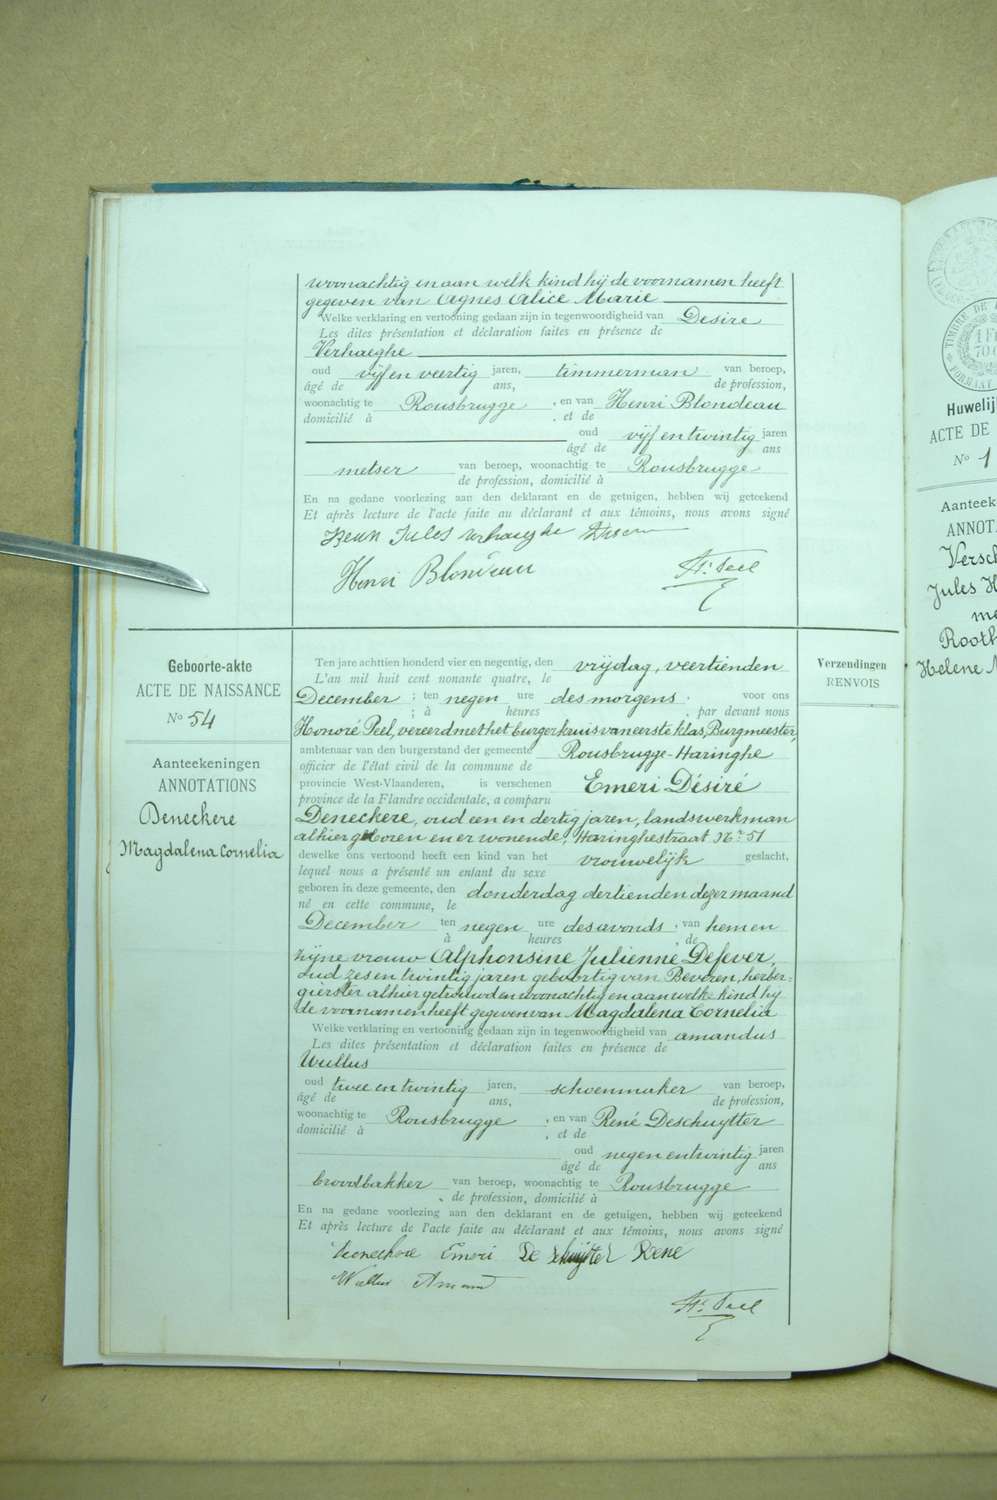 woonachtig en aan welk kind hij de voornamen heeft
gegeven van Agnes Alice Marie
Welke verklaring en vertooning gedaan zijn in tegenwoordigheid van Desiré
Les dites présentation et déclaration faites en présence de
Verhaeghe
oud vijf en veertig jaren, timmerman van beroep,
âgé de ans, de profession,
woonachtig te Rousbrugge , en van Henri Blondeau
domicilié à , et de
oud vijf en twintig jaren
âgé de ans
metser van beroep, woonachtig te Rousbrugge
de profession, domicilié à
En na gedane voorlezing aan den deklarant en de getuigen, hebben wij geteekend
Et après lecture de l'acte faite au déclarant et aux témoins, nous avons signé
Jules verhaeghe
Henri Blondeau Hré Peel
Geboorte-akte
ACTE DE NAISSANCE
No 54
Aanteekeningen
ANNOTATIONS
Deneckere
Magdalena Cornelia
Ten jare achttien honderd vier en negentig, den vrijdag, veertienden
L'an mil huit cent nonante quatre, le
December ; ten negen ure des morgens ; voor ons
; à heures ; par devant nous
Honoré Peel, vereerd met het burgerkruis van eerste klas, Burgmeester,
ambtenaar van den burgerstand der gemeente Rousbrugge-Haringhe
officier de l'état civil de la commune de
provincie West-Vlaanderen, is verschenen Emeri Désiré
province de la Flandre occidentale, a comparu
Deneckere, oud een en dertig jaren, landswerkman
alhier geboren en er wonende, Haringhestraat No 51
dewelke ons vertoond heeft een kind van het vrouwelijk geslacht,
lequel nous a présenté un enfant du sexe
geboren in deze gemeente, den donderdag dertienden dezer maand
né en cette commune, le
December ten negen ure des avonds , van hem en
à heures , de
zijne vrouw Alphonsine Julienne Defever,
oud zes en twintig jaren geboortig van Beveren, herber-
gierster alhier getrouwd en woonachtig en aan welke kind hij
de voornamen heeft gegeven van Magdalena Cornelia
Welke verklaring en vertooning gedaan zijn in tegenwoordigheid van amandus
Les dites présentation et déclaration faites en présence de
Wullus
oud twee en twintig jaren, schoenmaker van beroep,
âgé de ans, de profession,
woonachtig te Rousbrugge , en van René Deschuytter
domicilié à , et de
oud negen en twintig jaren
âgé de ans
broodbakker van beroep, woonachtig te Rousbrugge
de profession, domicilié à
En na gedane voorlezing aan den deklarant en de getuigen, hebben wij geteekend
Et après lecture de l'acte faite au déclarant et aux témoins, nous avons signé
Deneckere Emeri De schuytter Rene
Wullus Amand
Hré Peel
Verzendingen
RENVOIS
TIMBRE DE
FORMAT
Huwelij
ACTE DE
No 1
Aanteek
ANNOT
Versch
Jules H
me
Rooth
Helene M